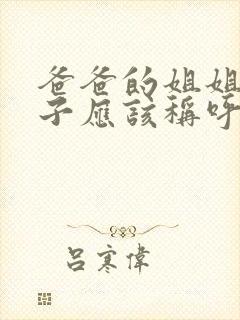 爸爸的姐姐
子应该称呼
吕寒伟